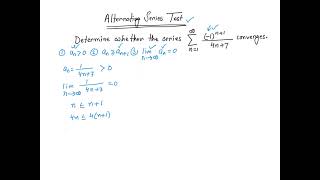 Alternating Series Test ✓
Determine whether the series ∑_{n=1}^{∞} (-1)^{n+1}/(4n+7) converges.
① aₙ>0 ② aₙ≥aₙ₊₁ ③ lim_{n→∞} aₙ=0
aₙ = 1/(4n+7) > 0
lim_{n→∞} 1/(4n+7) = 0
n ≤ n+1
4n ≤ 4(n+1)